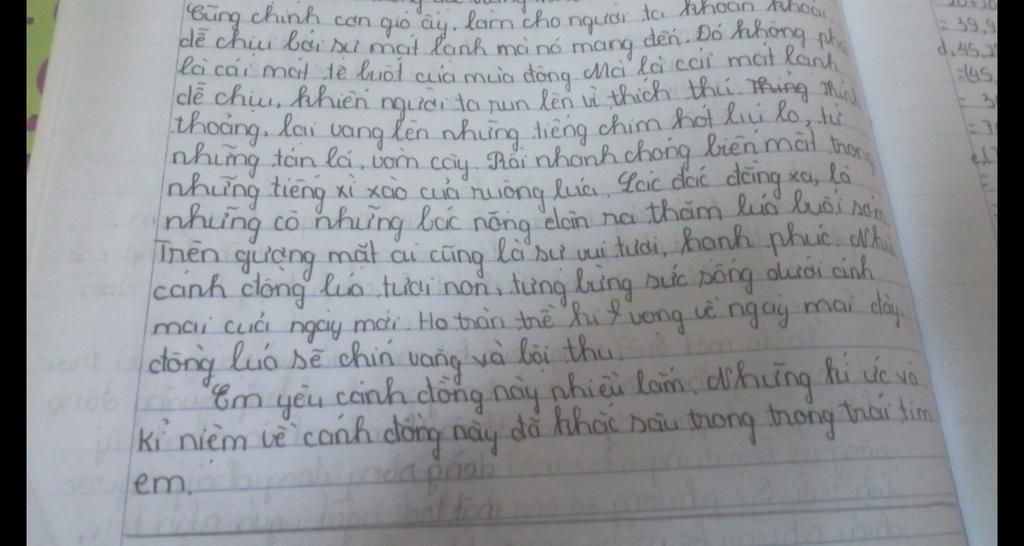 Cũng chính cơn gió ấy, làm cho người ta khoan khoái
dễ chịu bởi sự mát lành mà nó mang đến. Đó không
là cái mát tê buốt của mùa đông. Mà là cái mát lành
dễ chịu, khiến người ta run lên vì thích thú
thoảng, lại vang lên những tiếng chim hót líu lo, từ
những tán lá, vòm cây. Rồi nhanh chóng biến mất trong
những tiếng xì xào của ruộng lúa. Lác đác đằng xa, là
những cô những bác nông dân ra thăm lúa buổi sớm
Trên gương mặt ai cũng là sự vui tươi, hạnh phúc. Như
cánh đồng lúa tươi non, tưng bừng sức sống dưới ánh
mai của ngày mới. Họ tràn trề hi vọng về ngày mai đây
đồng lúa sẽ chín vàng và bội thu
Em yêu cánh đồng này nhiều lắm. Những kí ức và
kỉ niệm về cánh đồng này đã khắc sâu trong trong trái tim
em.
= 39,9
d, 45,2